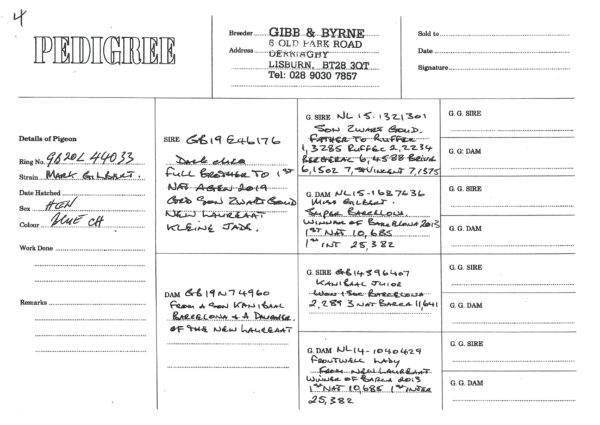 4
PEDIGREE
Breeder GIBB & BYRNE
Address 6 OLD PARK ROAD
DERRIAGHY
LISBURN, BT28 3QT
Tel: 028 9030 7857
Sold to
Date
Signature
Details of Pigeon
Ring No. GB20L 44033
Strain MARK GILBERT.
Date Hatched
Sex HEN
Colour BLUE CH
Work Done
Remarks
SIRE GB19E46176
DARK CHEQ
FULL BROTHER TO 1ST
NAT AGEN 2019
GRD SON ZWART GOUD
NEW LAUREAAT
KLEINE JADE.
DAM GB19N74960
FROM A SON KANIBAAL
BARCELONA & A DAUGHTER
OF THE NEW LAUREAAT
G. SIRE NL 15-1321301
SON ZWART GOUD.
FATHER TO RUFFEC
1, 3285 RUFFEC 2, 2234
BERGERAC 6, 4588 BRIVE
6, 1502 7, ST VINCENT 7, 1575
G. DAM NL15-1687636
MISS GILBERT.
SUPER BARCELONA.
WINNER OF BARCELONA 2013
1ST NAT 10,685
1ST INT 25,382
G. SIRE GB14S96407
KANIBAAL JUNIOR
WON 1 SEC BARCELONA
2, 289 3 NAT BARCA 11,641
G. DAM NL14-1040429
FRONTWELL LADY
FROM NEW LAUREAAT
WINNER OF BARCA 2013
1ST NAT 10,685 1ST INTER
25,382
G. G. SIRE
G. G: DAM
G. G. SIRE
G. G. DAM
G. G. SIRE
G. G. DAM
G. G. SIRE
G. G. DAM